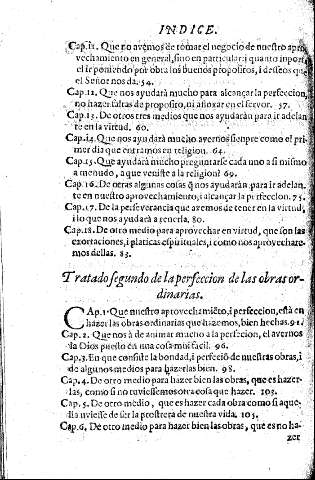 INDICE.
Cap.11. Que no avemos de tomar el negocio de nuestro apro
vechamiento en general, sino en particular: i quanto import
el ir poniendo por obra los buenos propositos, i deseos que
el Señor nos da. 54.
Cap.12. Que nos ayudarà mucho para alcançar la perfeccion,
no hazer faltas de proposito, ni afloxar en el fervor. 57.
Cap.13. De otros tres medios que nos ayudaràn para ir adelan
te en la virtud. 60.
Cap.14. Que nos ayudarà mucho avernos siempre como el pri-
mer dia que entramos en religion. 64.
Cap.15. Que ayudarà mucho preguntarse cada uno a si mismo
a menudo, a que veniste a la religion? 69.
Cap.16. De otras algunas cosas q̃ nos ayudaràn para ir adelan-
te en nuestro aprovechamiento, i alcançar la perfeccion. 75.
Cap.17. De la perseverancia que avemos de tener en la virtud,
i lo que nos ayudarà a tenerla. 80.
Cap.18. De otro medio para aprovechar en virtud, que son las
exortaciones, i platicas espirituales, i como nos aprovechare-
mos dellas. 83.
Tratado segundo de la perfeccion de las obras or-
dinarias.
CAp.1. Que nuestro aprovechamiẽto, i perfeccion, està en
hazer las obras ordinarias que hazemos, bien hechas. 91.
Cap.2. Que nos à de animar mucho a la perfeccion, el avernos
la Dios puesto en una cosa mui facil. 96.
Cap.3. En que consiste la bondad, i perfeciõ de nuestras obras, i
de algunos medios para hazerlas bien. 98.
Cap.4. De otro medio para hazer bien las obras, que es hazer-
las, como si no tuviessemos otra cosa que hazer. 103.
Cap.5. De otro medio, que es hazer cada obra como si aque-
lla uviesse de ser la postrera de nuestra vida. 105.
Cap.6. De otro medio para hazer bien las obras, que es no ha-
zer